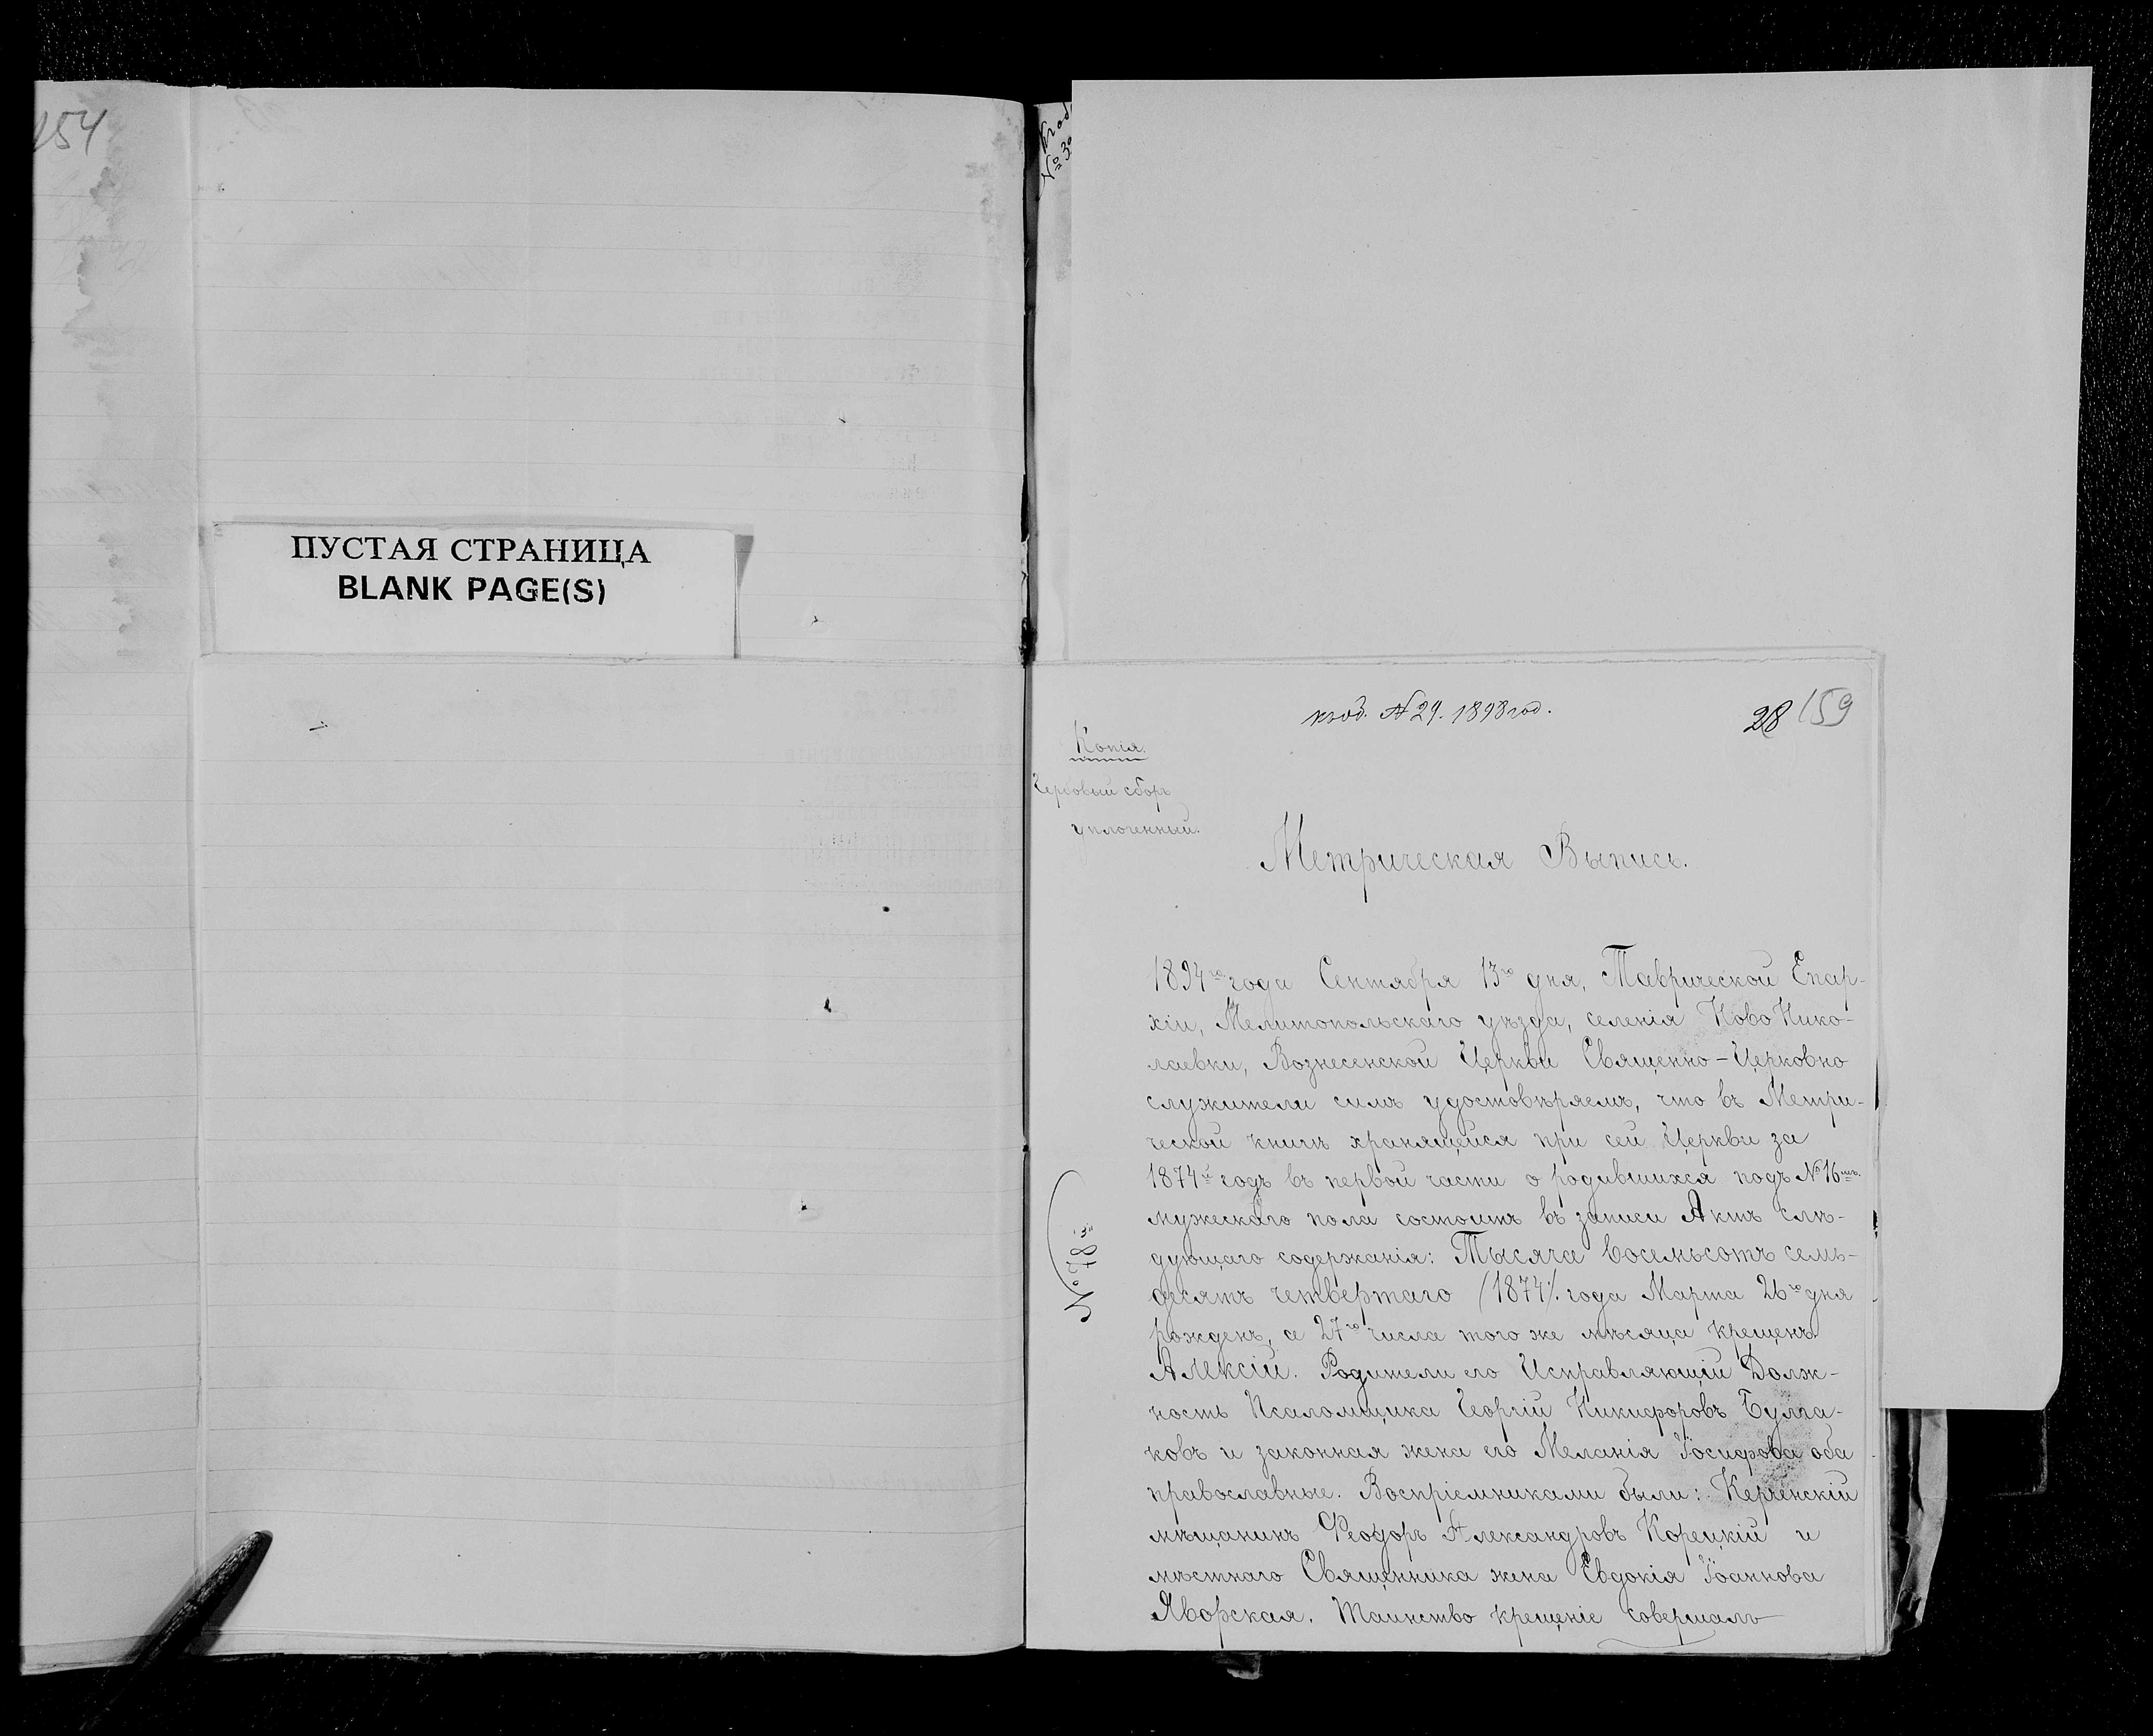 154
ПУСТАЯ СТРАНИЦА
BLANK PAGE(S)
№ 3
къ вд. № 29. 1898 год.
28 159
Копія.
Гербовый сборъ
уплоченный.
Метрическая Выпись.
1894го года Сентября 13го дня, Таврической Епар-
хіи, Мелитопольскаго уѣзда, селенія Ново Нико-
лаевки, Вознесенской Церкви Священно-Церковно
служители симъ удостовѣряемъ, что въ Метри-
ческой книгѣ хранящейся при сей Церкви за
1874й годъ въ первой части о родившихся подъ № 16мъ.
мужескаго пола состоитъ въ записи Актъ слѣ-
дующаго содержанія: Тысяча восемьсотъ семь-
десятъ четвертаго /1874/. года Марта 26го дня
рожденъ, а 27го числа того же мѣсяца крещенъ
Алексій. Родители его Исправляющій Долж-
ность Псаломщика Георгій Никифоровъ Булга-
ковъ и законная жена его Меланія Іосифова оба
православные. Воспріемниками были: Керченскій
мѣщанинъ Феодоръ Александровъ Корецкій и
мѣстнаго Священника жена Евдокія Іоаннова
Яворская. Таинство крещеніе совершалъ
№ 78й